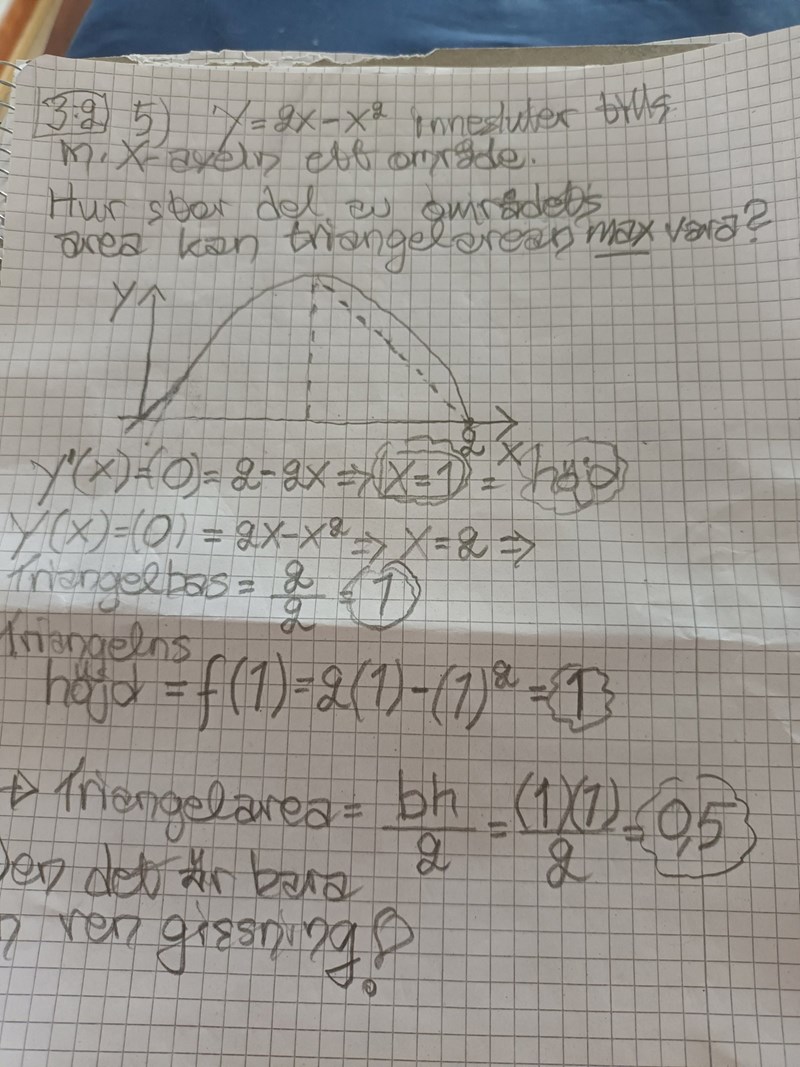 3.2 5) y = 2x - x² innesluter tills
m. x-axeln ett område.
Hur stor del av områdets
area kan triangelarean max vara?
y
2 x
y'(x)=(0)=2-2x ⇒ x=1 = höjd
y(x)=(0)=2x-x² ⇒ x=2 ⇒
Triangelbas = 2/2 = 1
Triangelns
höjd = f(1)=2(1)-(1)²=1
→ Triangelarea = bh/2 = (1)(1)/2 = 0,5
area